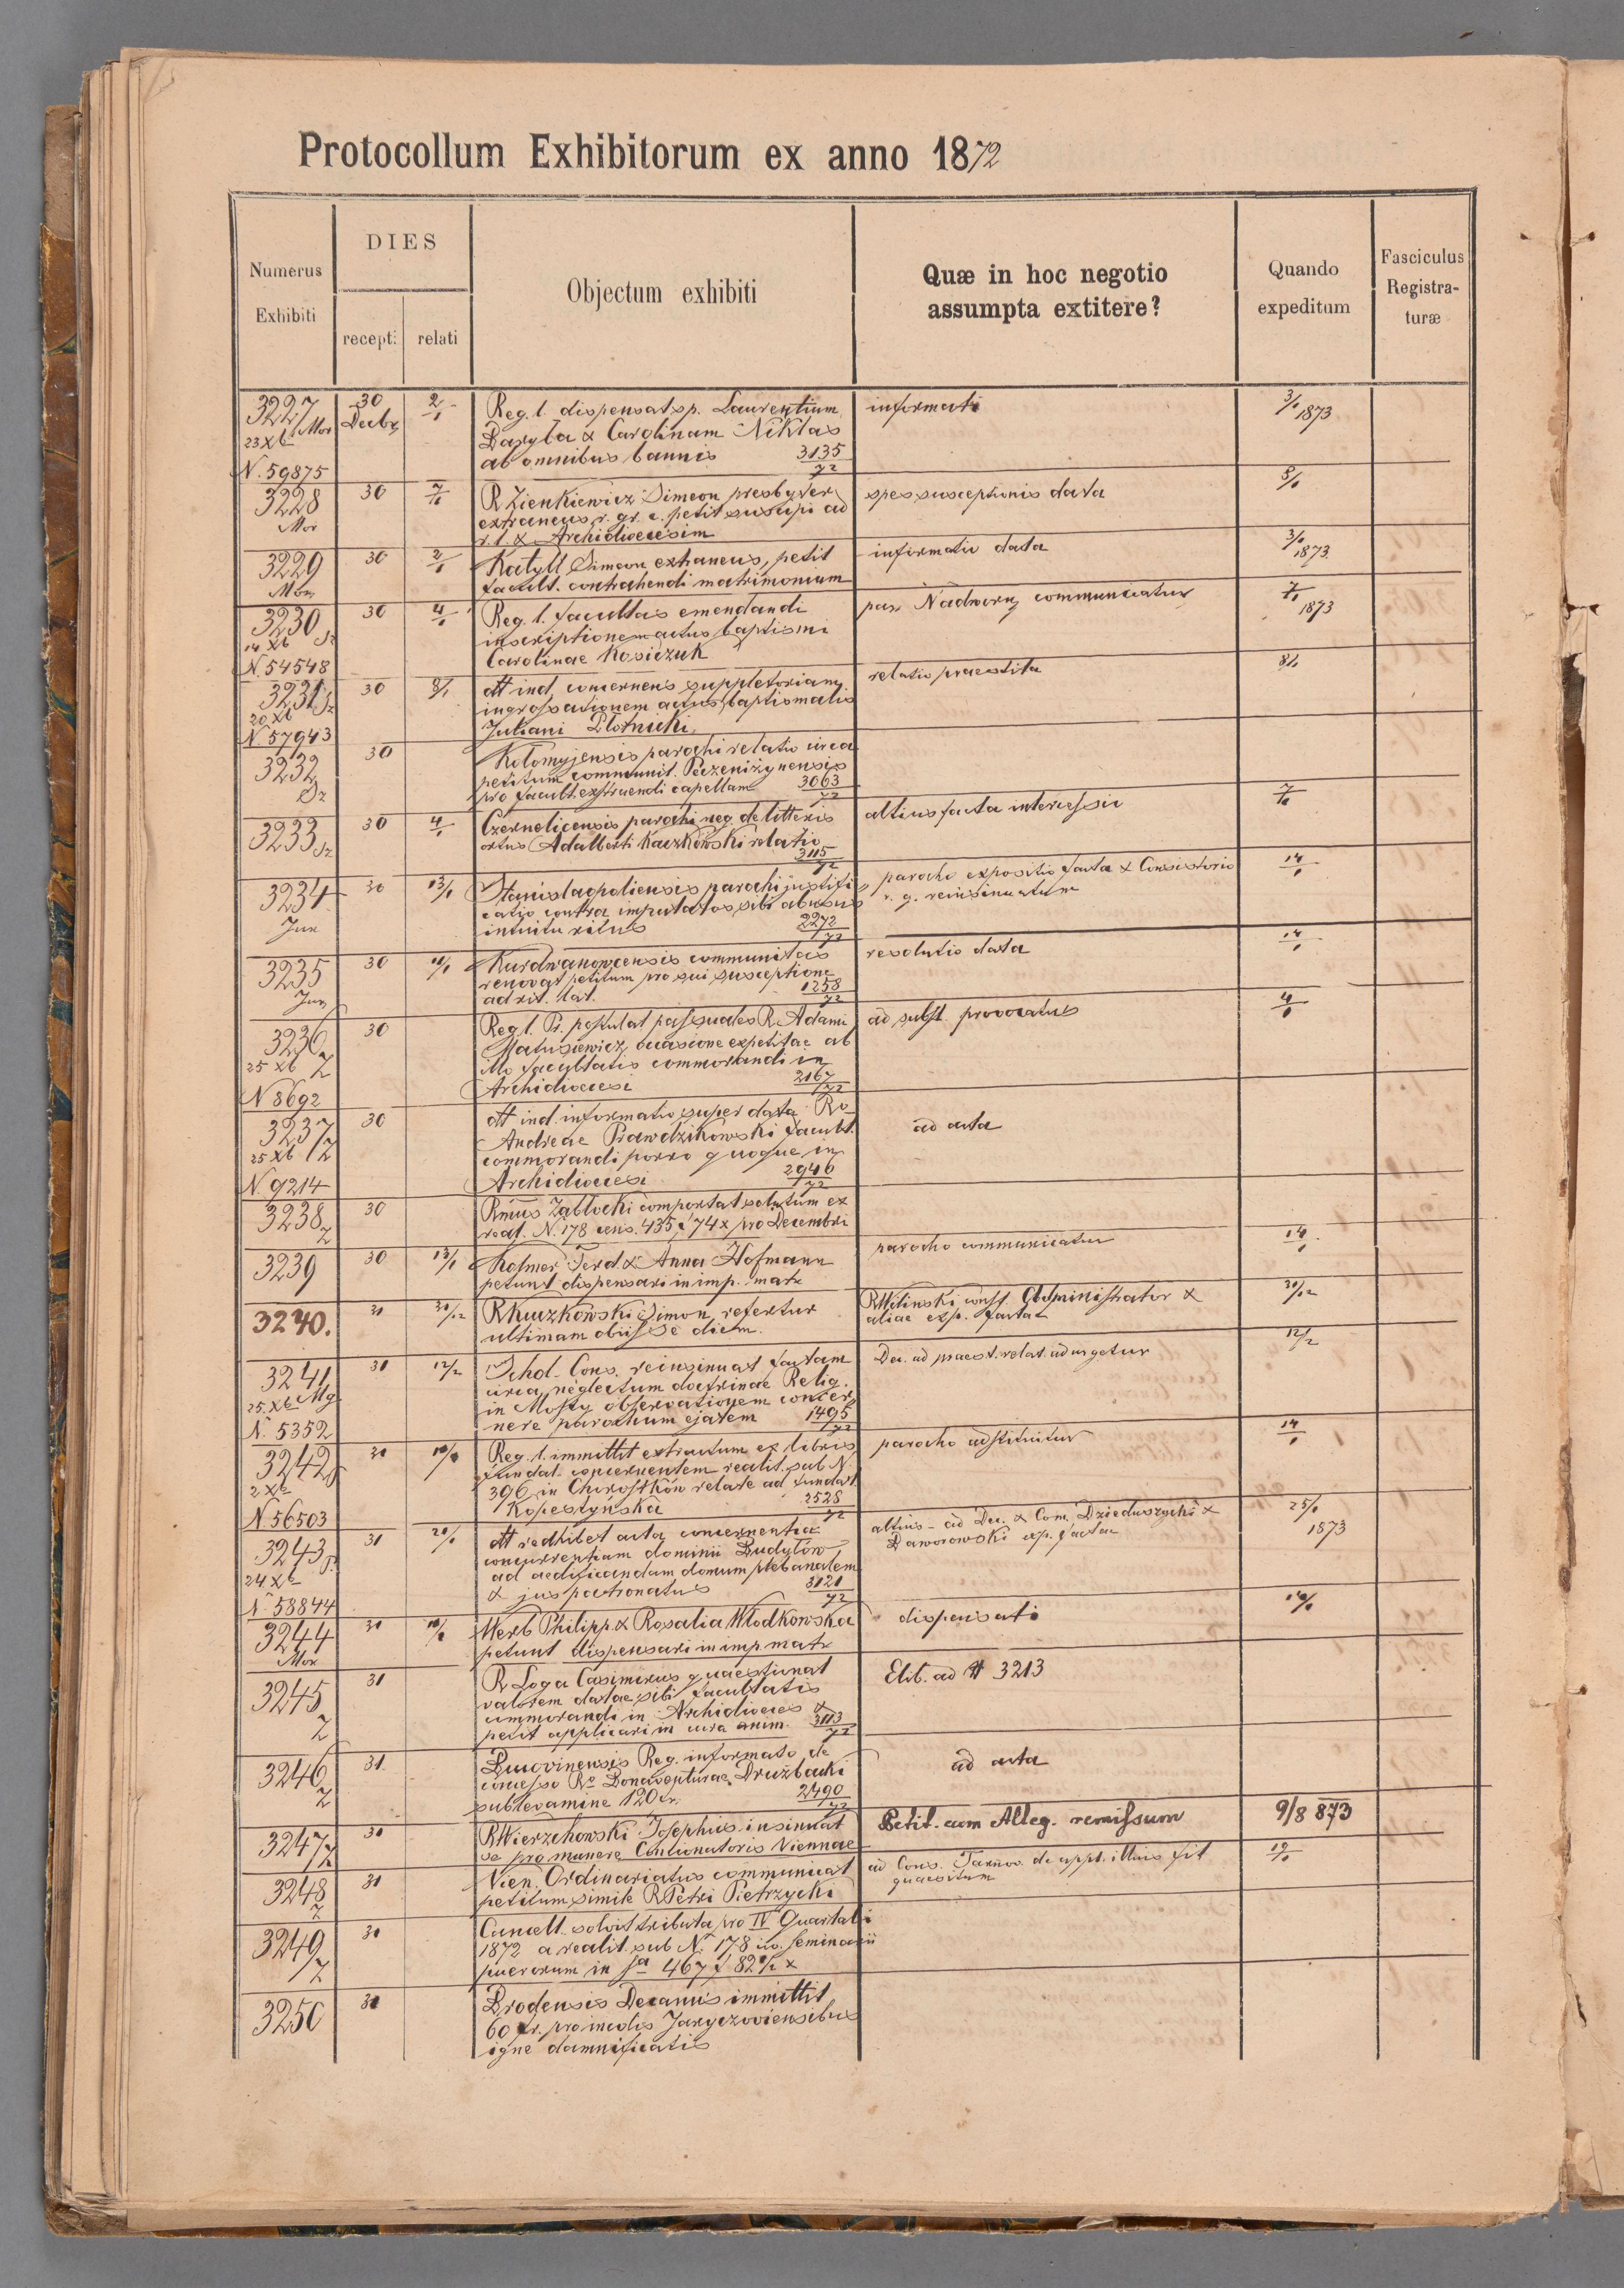 Protocollum Exhibitorum ex anno 1872
Numerus Exhibiti
DIES
recept:
relati
Objectum exhibiti
Quæ in hoc negotio
assumpta extitere?
Quando
expeditum
Fasciculus
Registra-
turæ
3227 Mor 30 2/1 Reg. l. dispensat sp. Laurentium informati 3/1 1873
23 Xb Decbr Daryła & Carolinam Niklas
N. 59875 ab omnibus bannis 3135/72
3228 30 7/1 R Zienkiewicz Simeon presbyter spes susceptionis data 8/1
Mor extraneus r. gr. c. petit suscipi ad
r. l. & Archidioecesim
3229 30 2/1 Katyll Simeon extraneus, petit informatio data 3/1 1873
Mor facult. contrahendi matrimonium
3230 30 4/1 Reg. l. facultas emendandi par Nadworn communicatur 7/1 1873
14 Xb inscriptionem actus baptismi
N. 54548 Carolinae Kosiczuk
3231 30 8/1 dtt ind. concernens suppletoriam relatio praestita 8/1
20 Xb ingrossationem actus baptismatis
N. 57943 Juliani
3232 30 Kołomyjensis parochi relatio circa
petitum communit. Peczeniżynensis
pro facult. exstruendi capellam 3063/72
3233 30 4/1 Czernelicensis parochi neg. de litteris altius facta intercessio 7/1
ortus Adalberti Kaczkowski relatio
3115/72
3234 30 13/1 Stanislaopoliensis parochi justifi- parocho expositio facta & Consistorio 14/1
Jun catio contra imputatos sibi abusus r. g. reinsinuatum
intuitu ritus 2272/72
3235 30 Kurdwanowcensis communitas resolutio data 14/1
Jun renovat petitum pro sui susceptione
ad rit. lat. 1258/72
3236 30 Reg. l. Pr. postulat passuales R. Adami ad subst. provocatus 4/1
25 Xb Z Matusiewicz occasione expetitae ab
illo facultatis commorandi in
N 8692 Archidioecesi 2167/72
3237 30 dtt ind. informatio super data Ro ad acta
25 Xb Z Andreae Prawdzikowski facult.
commorandi porro quoque in
N. 9214 Archidioecesi 2946/72
3238 30 Rmus Zabłocki comportat solutum ex
Z reat. N. 178 cens. 435 f 74 x pro Decembri
3239 30 13/1 Kosmer Ferd. & Anna Hofmann parocho communicatur 14/1
petunt dispensari in imp. matr
3240. 31 30/12 R Kuczkowski Simon refertur R Wilinski const. Administrator & 30/12
ultimam obiisse diem. aliae exp. factae
3241 31 12/2 Schol. Cons. reinsinuat factam Dec. ad praest. relat. adurgetur 12/2
25. Xb Mg circa neglectum doctrinae Relig.
in Mosty observationem concer-
N. 5352 nere parochum ejatem 1495/72
3242 31 Reg. l. immittit extractum ex libris parocho adstituitur 14/1
2 Xb fundat. concernentem realit. sub N
396 in Chorostków relate ad fundat.
N 56503 Kopestyńska 2528/72
3243 31 20/1 dtt redhibet acta concernentia altius - ad Dec. & Com. Dzieduszycki & 25/1
24 Xb concurrentiam dominii Budyłów Baworowski exp. factae 1873
ad aedificandam domum plebanalem
N 58844 & jus patronatus 3121/72
3244 31 Werb Philipp. & Rosalia Włodkowska dispensati
Mor petunt dispensari in imp matr
3245 31 R Loga Casimirus quaestionat Elib. ad # 3213
Z valorem datae sibi facultatis
commorandi in Archidioeces &
petit applicari in cura anim. 3113/72
3246 31 Bucovinensis Reg. informatio de ad acta
Z concesso Ro Bonaventurae Drużbacki
sublevamine 120 fr. 2490/72
3247 31 R Wierzchowski Josephus insinuat Petit. cum Alleg. remissum 9/8 873
Z se pro munere Concionatoris Viennae
3248 31 Vien. Ordinariatus communicat ad Cons. Tarnov. de appl. illius fit
Z petitum simile R Petri Pietrzycki quaesitum
3249 31 Cancell. solvit tributa pro IV Quartali
Z 1872 a realit. sub N. 178 Seminarii
puerorum in sa 467 f 82 1/2 x
3250 31 Brodensis Decanus immittit
60 fr. pro incolis Jaryczoviensibus
igne damnificatis